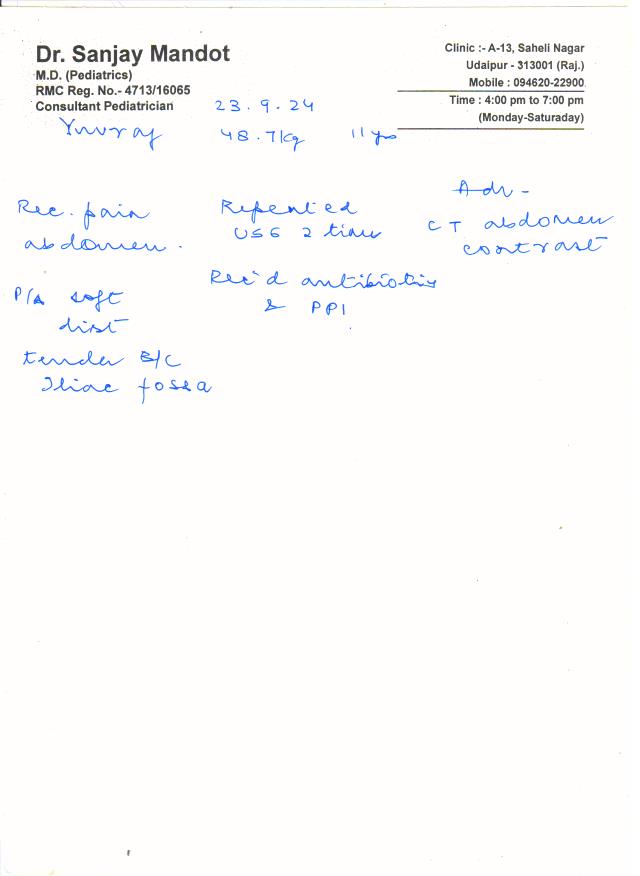 Dr. Sanjay Mandot
M.D. (Pediatrics)
RMC Reg. No.- 4713/16065
Consultant Pediatrician
Clinic :- A-13, Saheli Nagar
Udaipur - 313001 (Raj.)
Mobile : 094620-22900
Time : 4:00 pm to 7:00 pm
(Monday-Saturaday)
23.9.24
Yuvraj 48.7kg 11 yrs
Rec. pain
abdomen.
P/A soft
dist
tender B/C
Iliac fossa
Repeated
USG 2 times
Rec'd antibiotics
& PPI
Adv -
CT abdomen
contrast